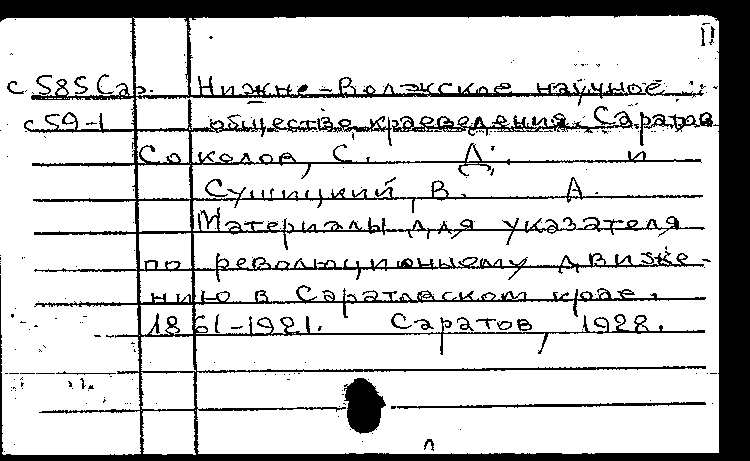 с585Сар. Нижне-Волжское научное
с59-1 общество краеведения. Саратов
Соколов, С. Д. и
Сушицкий, В. А.
Материалы для указателя
по революционному движе-
нию в Саратовском крае.
1861-1921. Саратов, 1928.